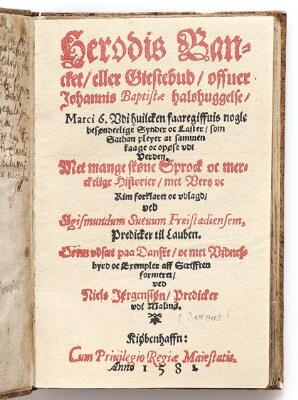 Herodis Ban-
cket/ eller Giestebud/ offuer
Johannis Baptistæ halshuggelse/
Marci 6. Vdi huilcken faaregiffuis nogle
besønderlige Synder oc Laster/ som
Sathan pleyer at sammen
kaage oc opøse vdi
Verden.
Met mange skøne Sprock oc mer-
ckelige Historier/ met Vers oc
Rim forklaret oc vdlagd/
ved
Sigismundum Sueuum Freistadiensem,
Predicker til Lauben.
vdsæt paa Danskt/ oc met Vidnes-
byrd oc Exempler aff Scrifften
formeret/
ved
Niels Jørgensøn/ Predicker
vdi Malmø.
Kiøbenhaffn:
Cum Privilegio Regiæ Maiestatis.
Anno 1581